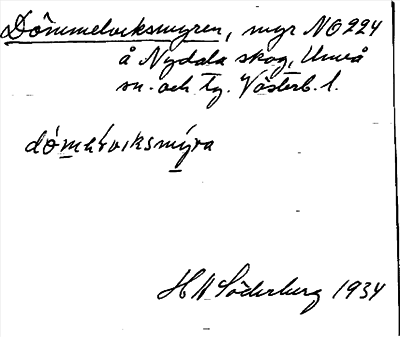 Dömmelviksmyren, myr NO224
å Nydala skog, Umeå
sn. och tg. Västerb. l.
dómelviksmýra
H W Söderberg 1934